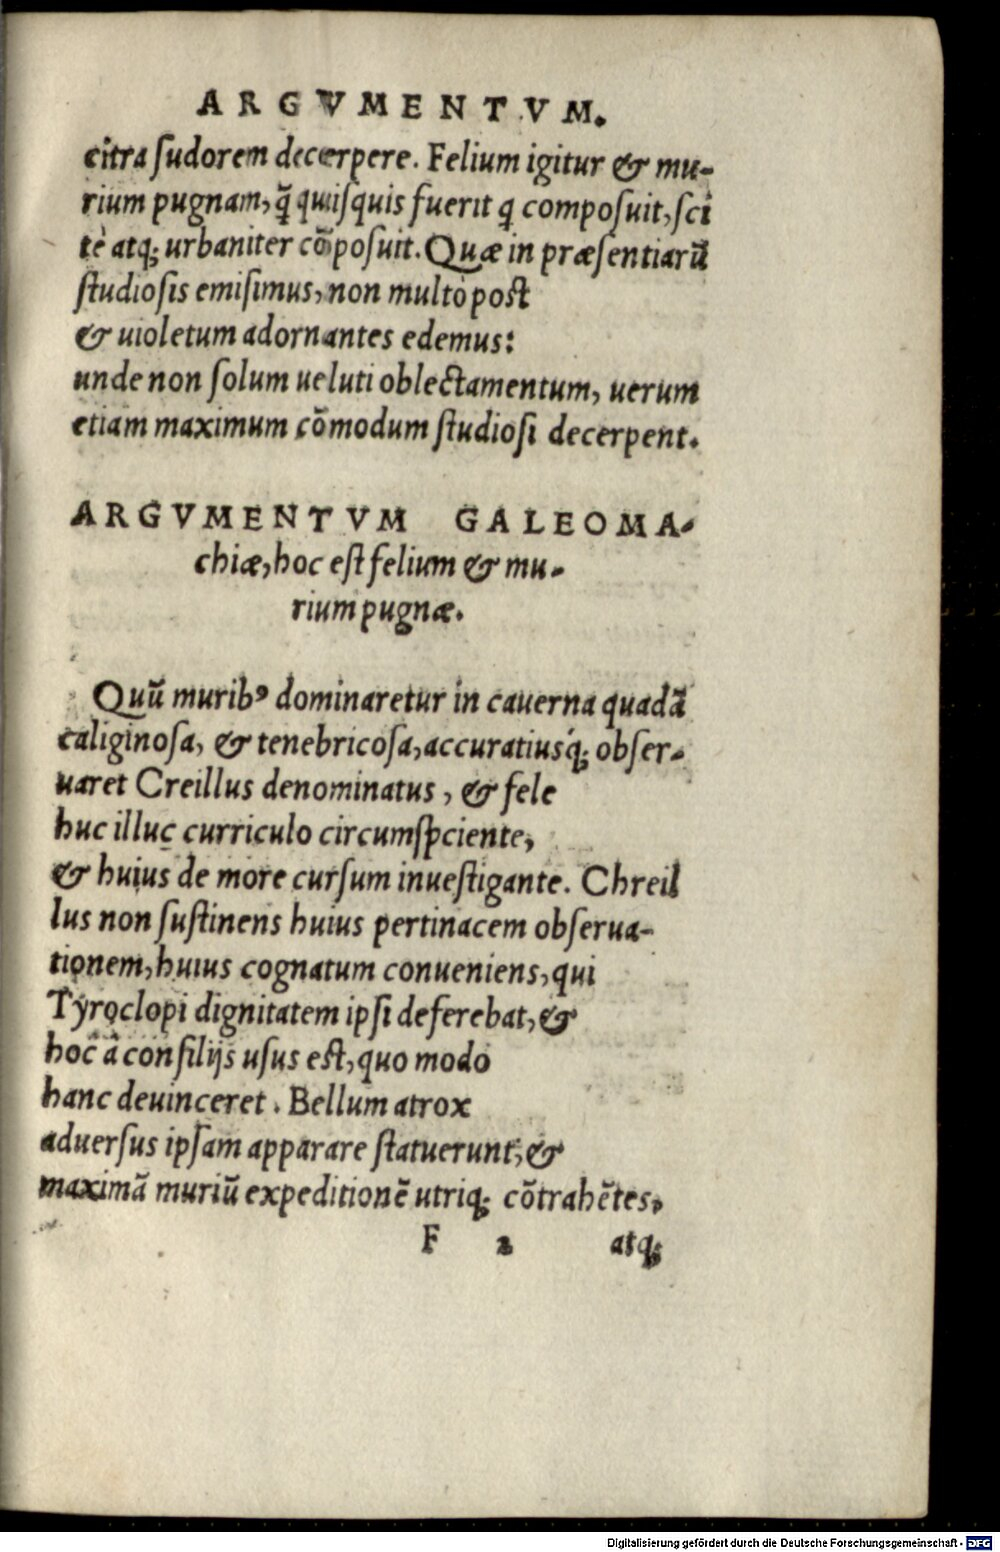 ARGVMENTVM.
citra ſudorem decerpere. Felium igitur & mu-
rium pugnam, q̃ quiſquis fuerit q compoſuit, ſci
tè atq; urbaniter cōpoſuit. Quæ in præſentiarũ
ſtudioſis emiſimus, non multò poſt
& uioletum adornantes edemus:
unde non ſolum ueluti oblectamentum, uerum
etiam maximum cōmodum ſtudioſi decerpent.
ARGVMENTVM GALEOMA-
chiæ, hoc eſt felium & mu-
rium pugnæ.
Quũ muribꝰ dominaretur in cauerna quadã
caliginoſa, & tenebricoſa, accuratiusq́; obſer-
uaret Creillus denominatus, & fele
huc illuc curriculo circumſpciente,
& huius de more curſum inueſtigante. Chreil
lus non ſuſtinens huius pertinacem obſerua-
tionem, huius cognatum conueniens, qui
Tyroclopi dignitatem ipſi deferebat, &
hoc à conſilijs uſus eſt, quo modo
hanc deuinceret. Bellum atrox
aduerſus ipſam apparare ſtatuerunt, &
maximã muriũ expeditionē utriq; cōtrahētes,
F 2 atq;
Digitalisierung gefördert durch die Deutsche Forschungsgemeinschaft - DFG